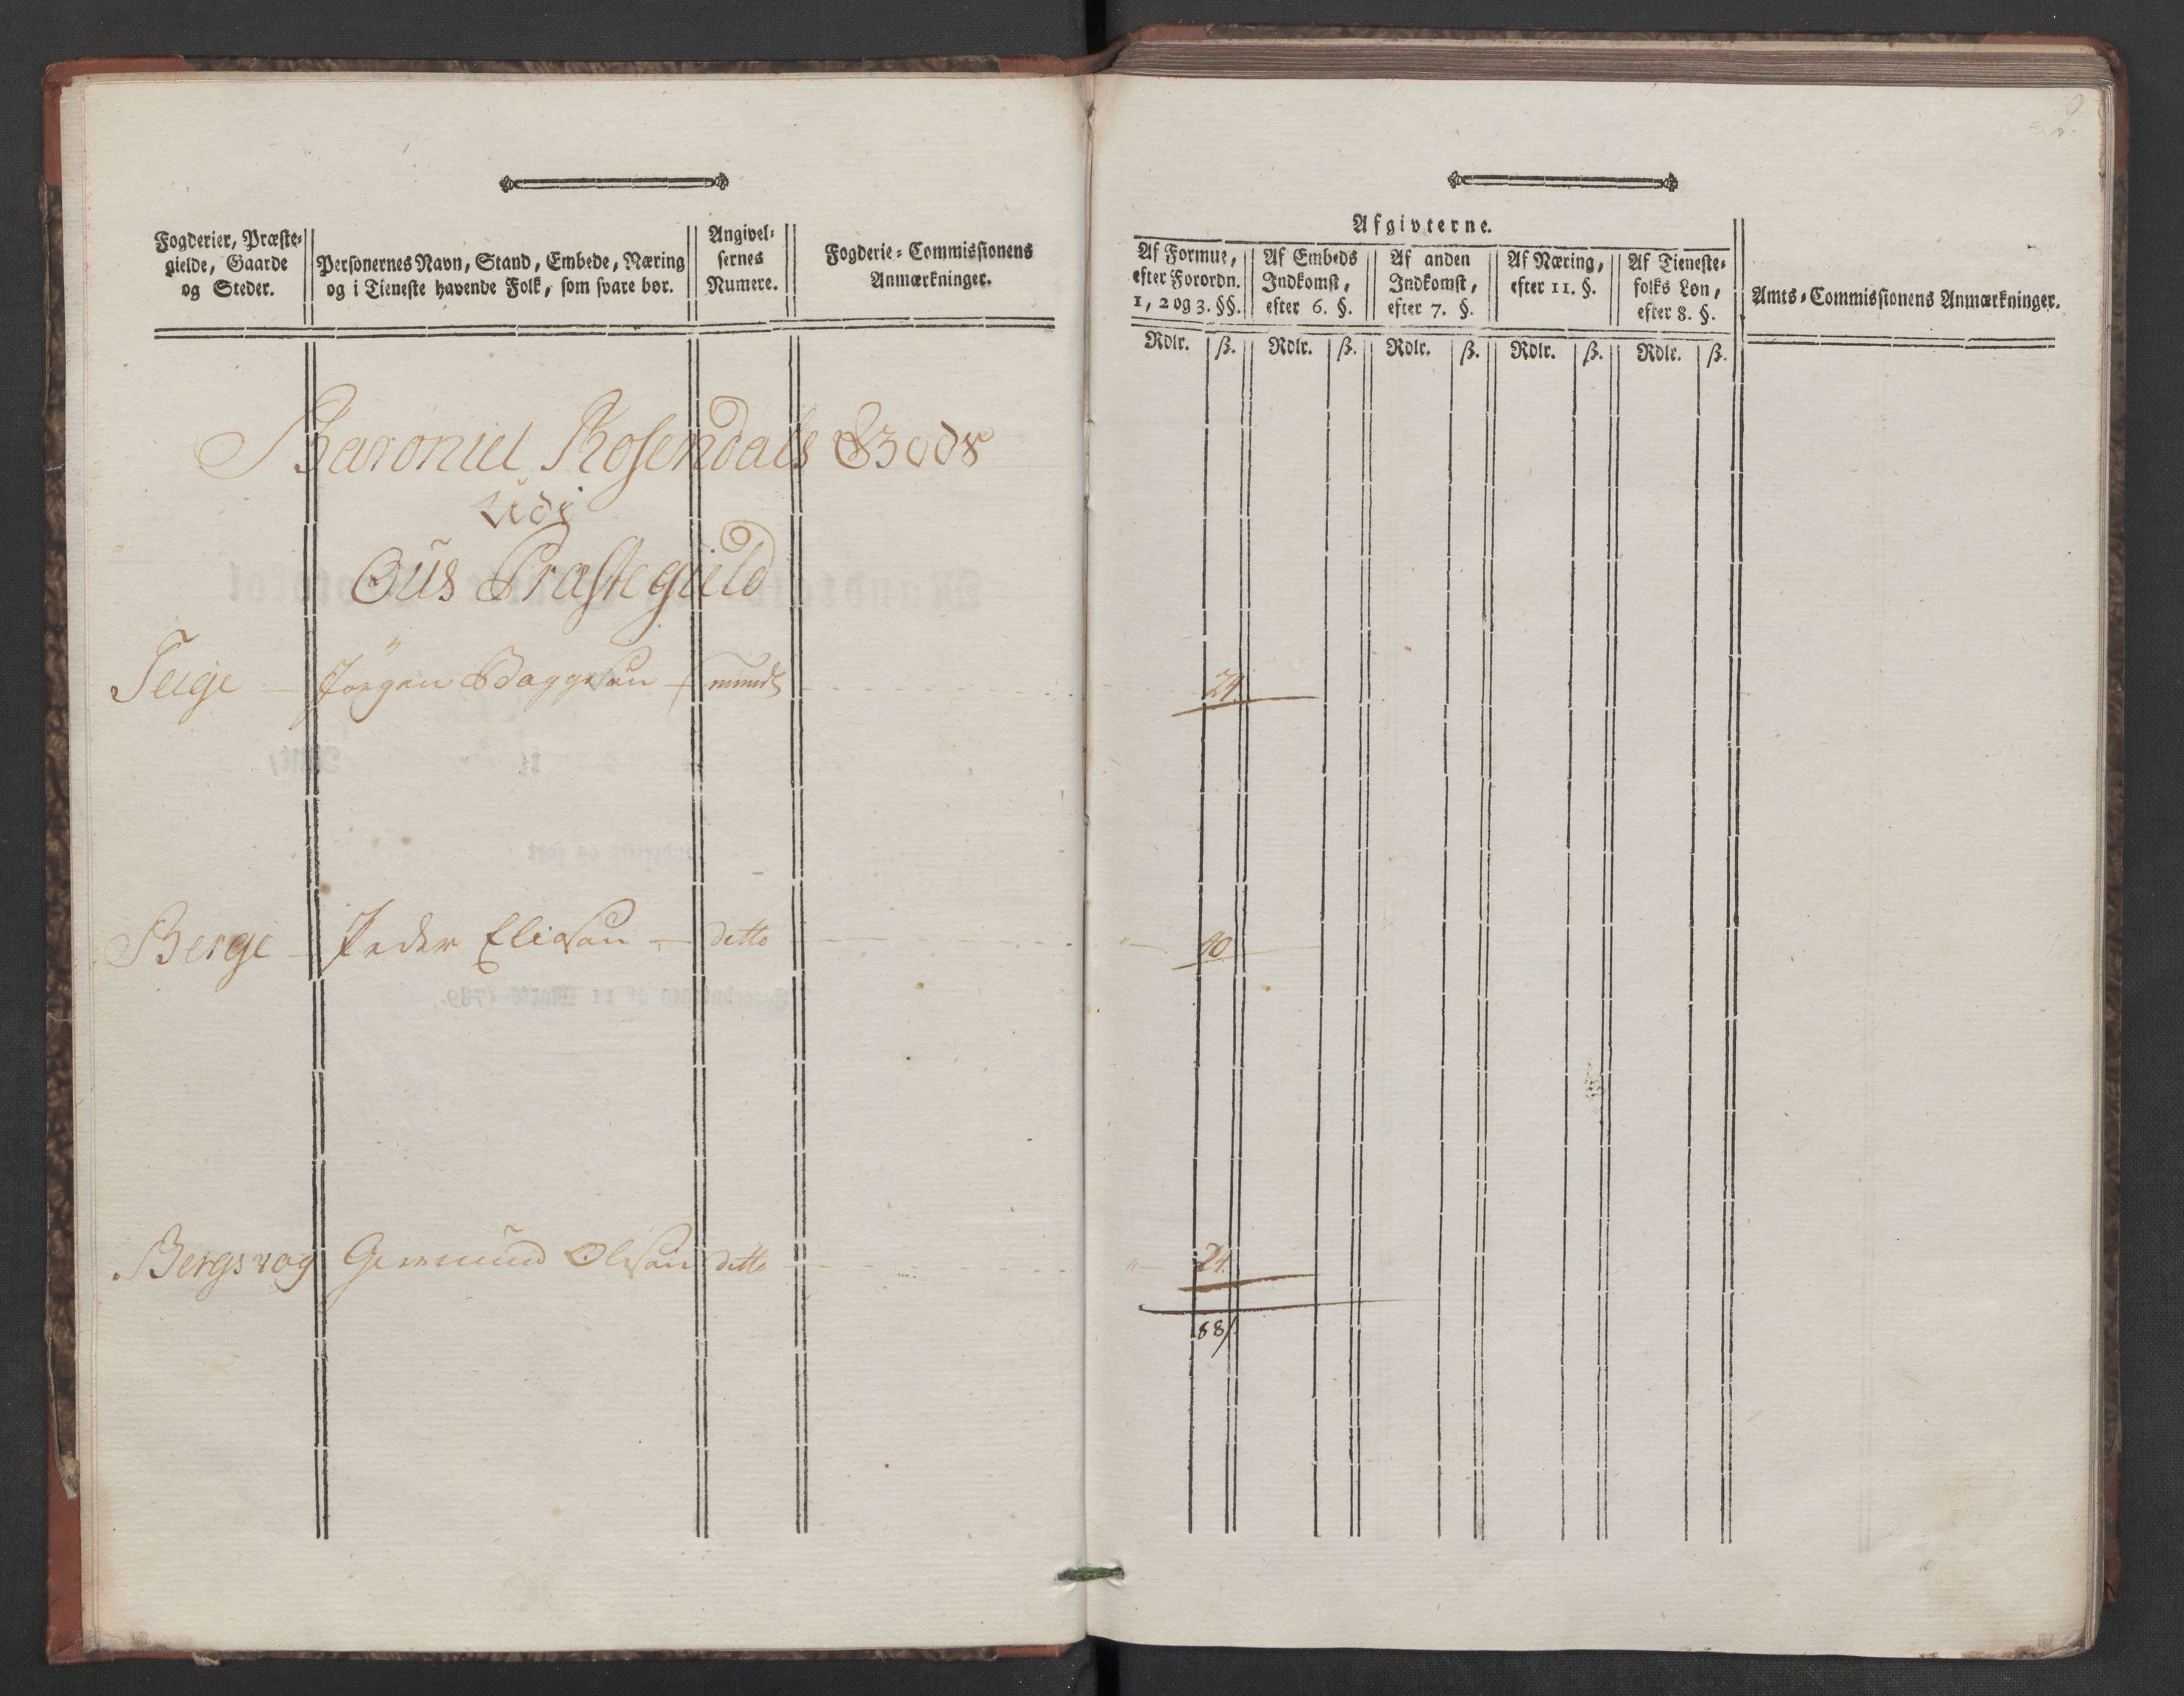 Fogderier, Præste-
gielde, Gaarde
og Steder.
Personernes Navn, Stand, Embede, Næring
og i Tieneste havende Folk, som svare bør.
Angivel-
sernes
Numere.
Fogderie-Commissionens
Anmærkninger.
Baroniet Rosendals Gods
Udi
Ous Præstegield
Teige — Jörgen Baggesøn — mundl
Berge — Peder Eliasøn — ditto
Bergsvog Germund Olsøn ditto
2.
Afgivterne.
Af Formue,
efter Forordn.
1, 2 og 3. §§.
Af Embeds
Indkomst,
efter 6. §.
Af anden
Indkomst,
efter 7. §.
Af Næring,
efter 11. §.
Af Tieneste-
folks Løn,
efter 8. §.
Amts-Commissionens Anmærkninger.
Rdlr. ß. Rdlr. ß. Rdlr. ß. Rdlr. ß. Rdlr. ß.
24.
"— 40
"— 24.
88/.